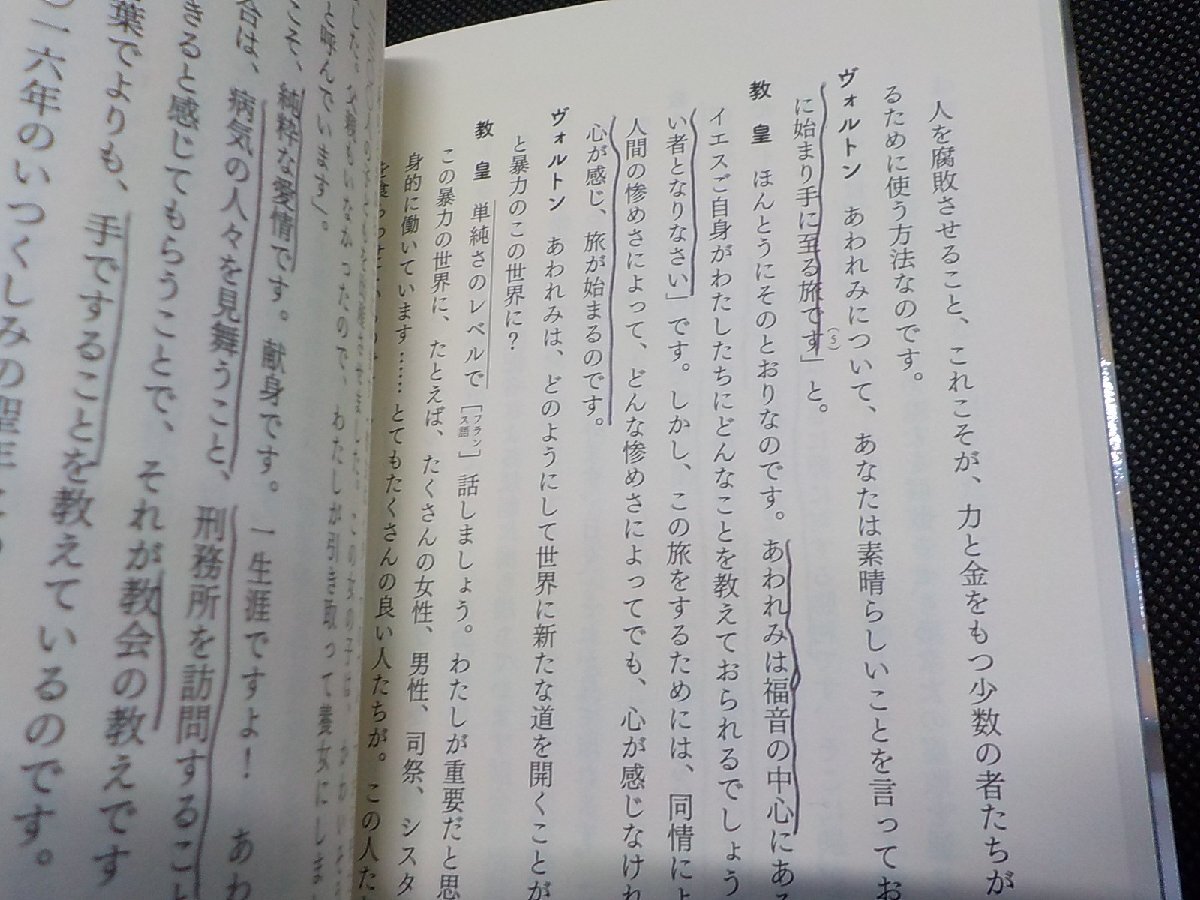 人を腐敗させること、これこそが、力と金をもつ少数の者たちが
るために使う方法なのです。
ヴォルトン あわれみについて、あなたは素晴らしいことを言ってお
に始まり手に至る旅です(5)」と。
教 皇 ほんとうにそのとおりなのです。あわれみは福音の中心にある
イエスご自身がわたしたちにどんなことを教えておられるでしょう
い者となりなさい」です。しかし、この旅をするためには、同情によ
人間の惨めさによって、どんな惨めさによってでも、心が感じなけれ
心が感じ、旅が始まるのです。
ヴォルトン あわれみは、どのようにして世界に新たな道を開くことが
と暴力のこの世界に？
教 皇 単純さのレベルで[フランス語]」話しましょう。わたしが重要だと思
この暴力の世界に、たとえば、たくさんの女性、男性、司祭、シスタ
身的に働いています……とてもたくさんの良い人たちが。この人た
した。父親もいなかったので、わたしが引き取って養女にしま
と呼んでいます」。
こそ、純粋な愛情です。献身です。一生涯ですよ！ あわ
合は、病気の人々を見舞うこと、刑務所を訪問すること
きると感じてもらうことで、それが教会の教えです
葉でよりも、手ですることを教えているのです。
〇一六年のいつくしみの聖年